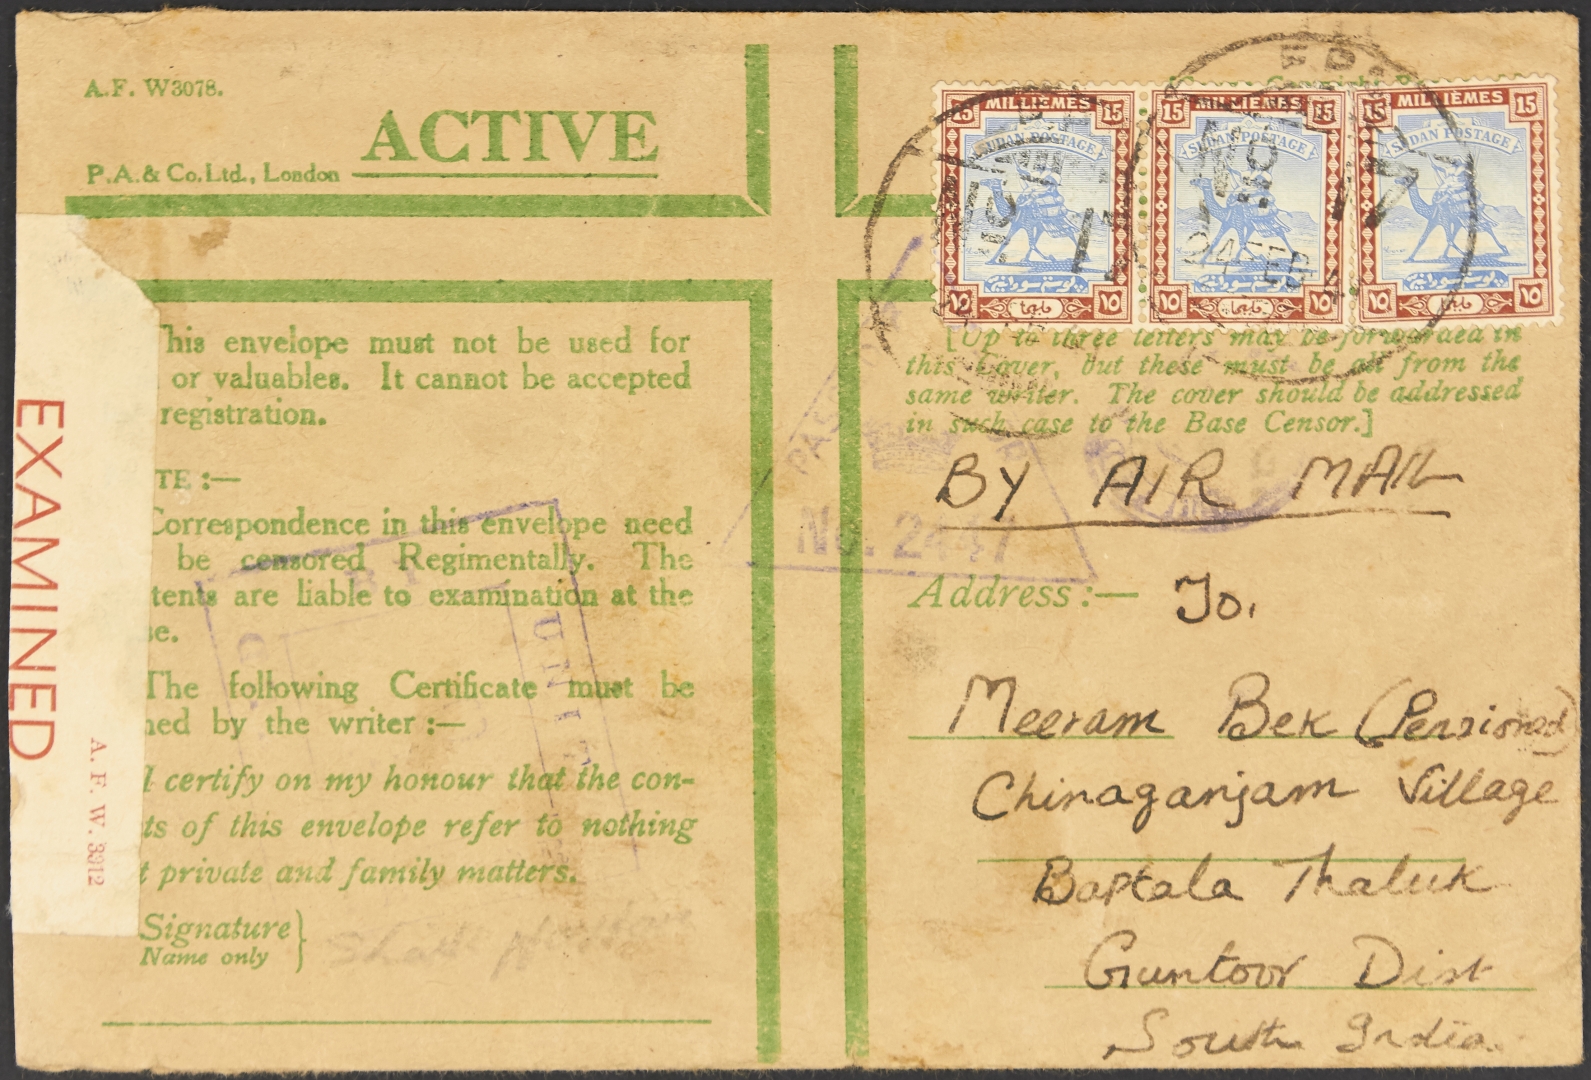 A.F. W3078.
ACTIVE
P.A.& Co.Ltd., London
This envelope must not be used for
or valuables. It cannot be accepted
registration.
TE :—
Correspondence in this envelope need
be censored Regimentally. The
tents are liable to examination at the
se.
The following Certificate must be
ned by the writer :—
I certify on my honour that the con-
ts of this envelope refer to nothing
t private and family matters.
Signature
Name only
EXAMINED
A. F. W. 3912
UNIT
15 MILLIÈMES 15
SUDAN POSTAGE
١٥ ١٥
15 MILLIÈMES 15
SUDAN POSTAGE
١٥ ١٥
15 MILLIÈMES 15
SUDAN POSTAGE
١٥ ١٥
[Up to three letters may be forwarded in
this Cover, but these must be all from the
same writer. The cover should be addressed
in such case to the Base Censor.]
No. 2447
BY AIR MAIL
Address :— To,
Meeram Bek (Pensioned)
Chinaganjam Village
Baptala Thaluk
Guntoor Dist
South India.